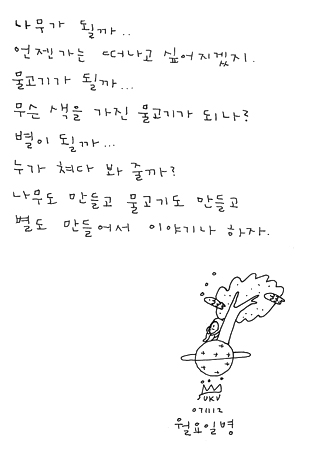 나무가 될까..
언젠가는 떠나고 싶어지겠지.
물고기가 될까...
무슨 색을 가진 물고기가 되나?
별이 될까...
누가 쳐다 봐 줄까?
나무도 만들고 물고기도 만들고
별도 만들어서 이야기나 하자.
071112
월요일병